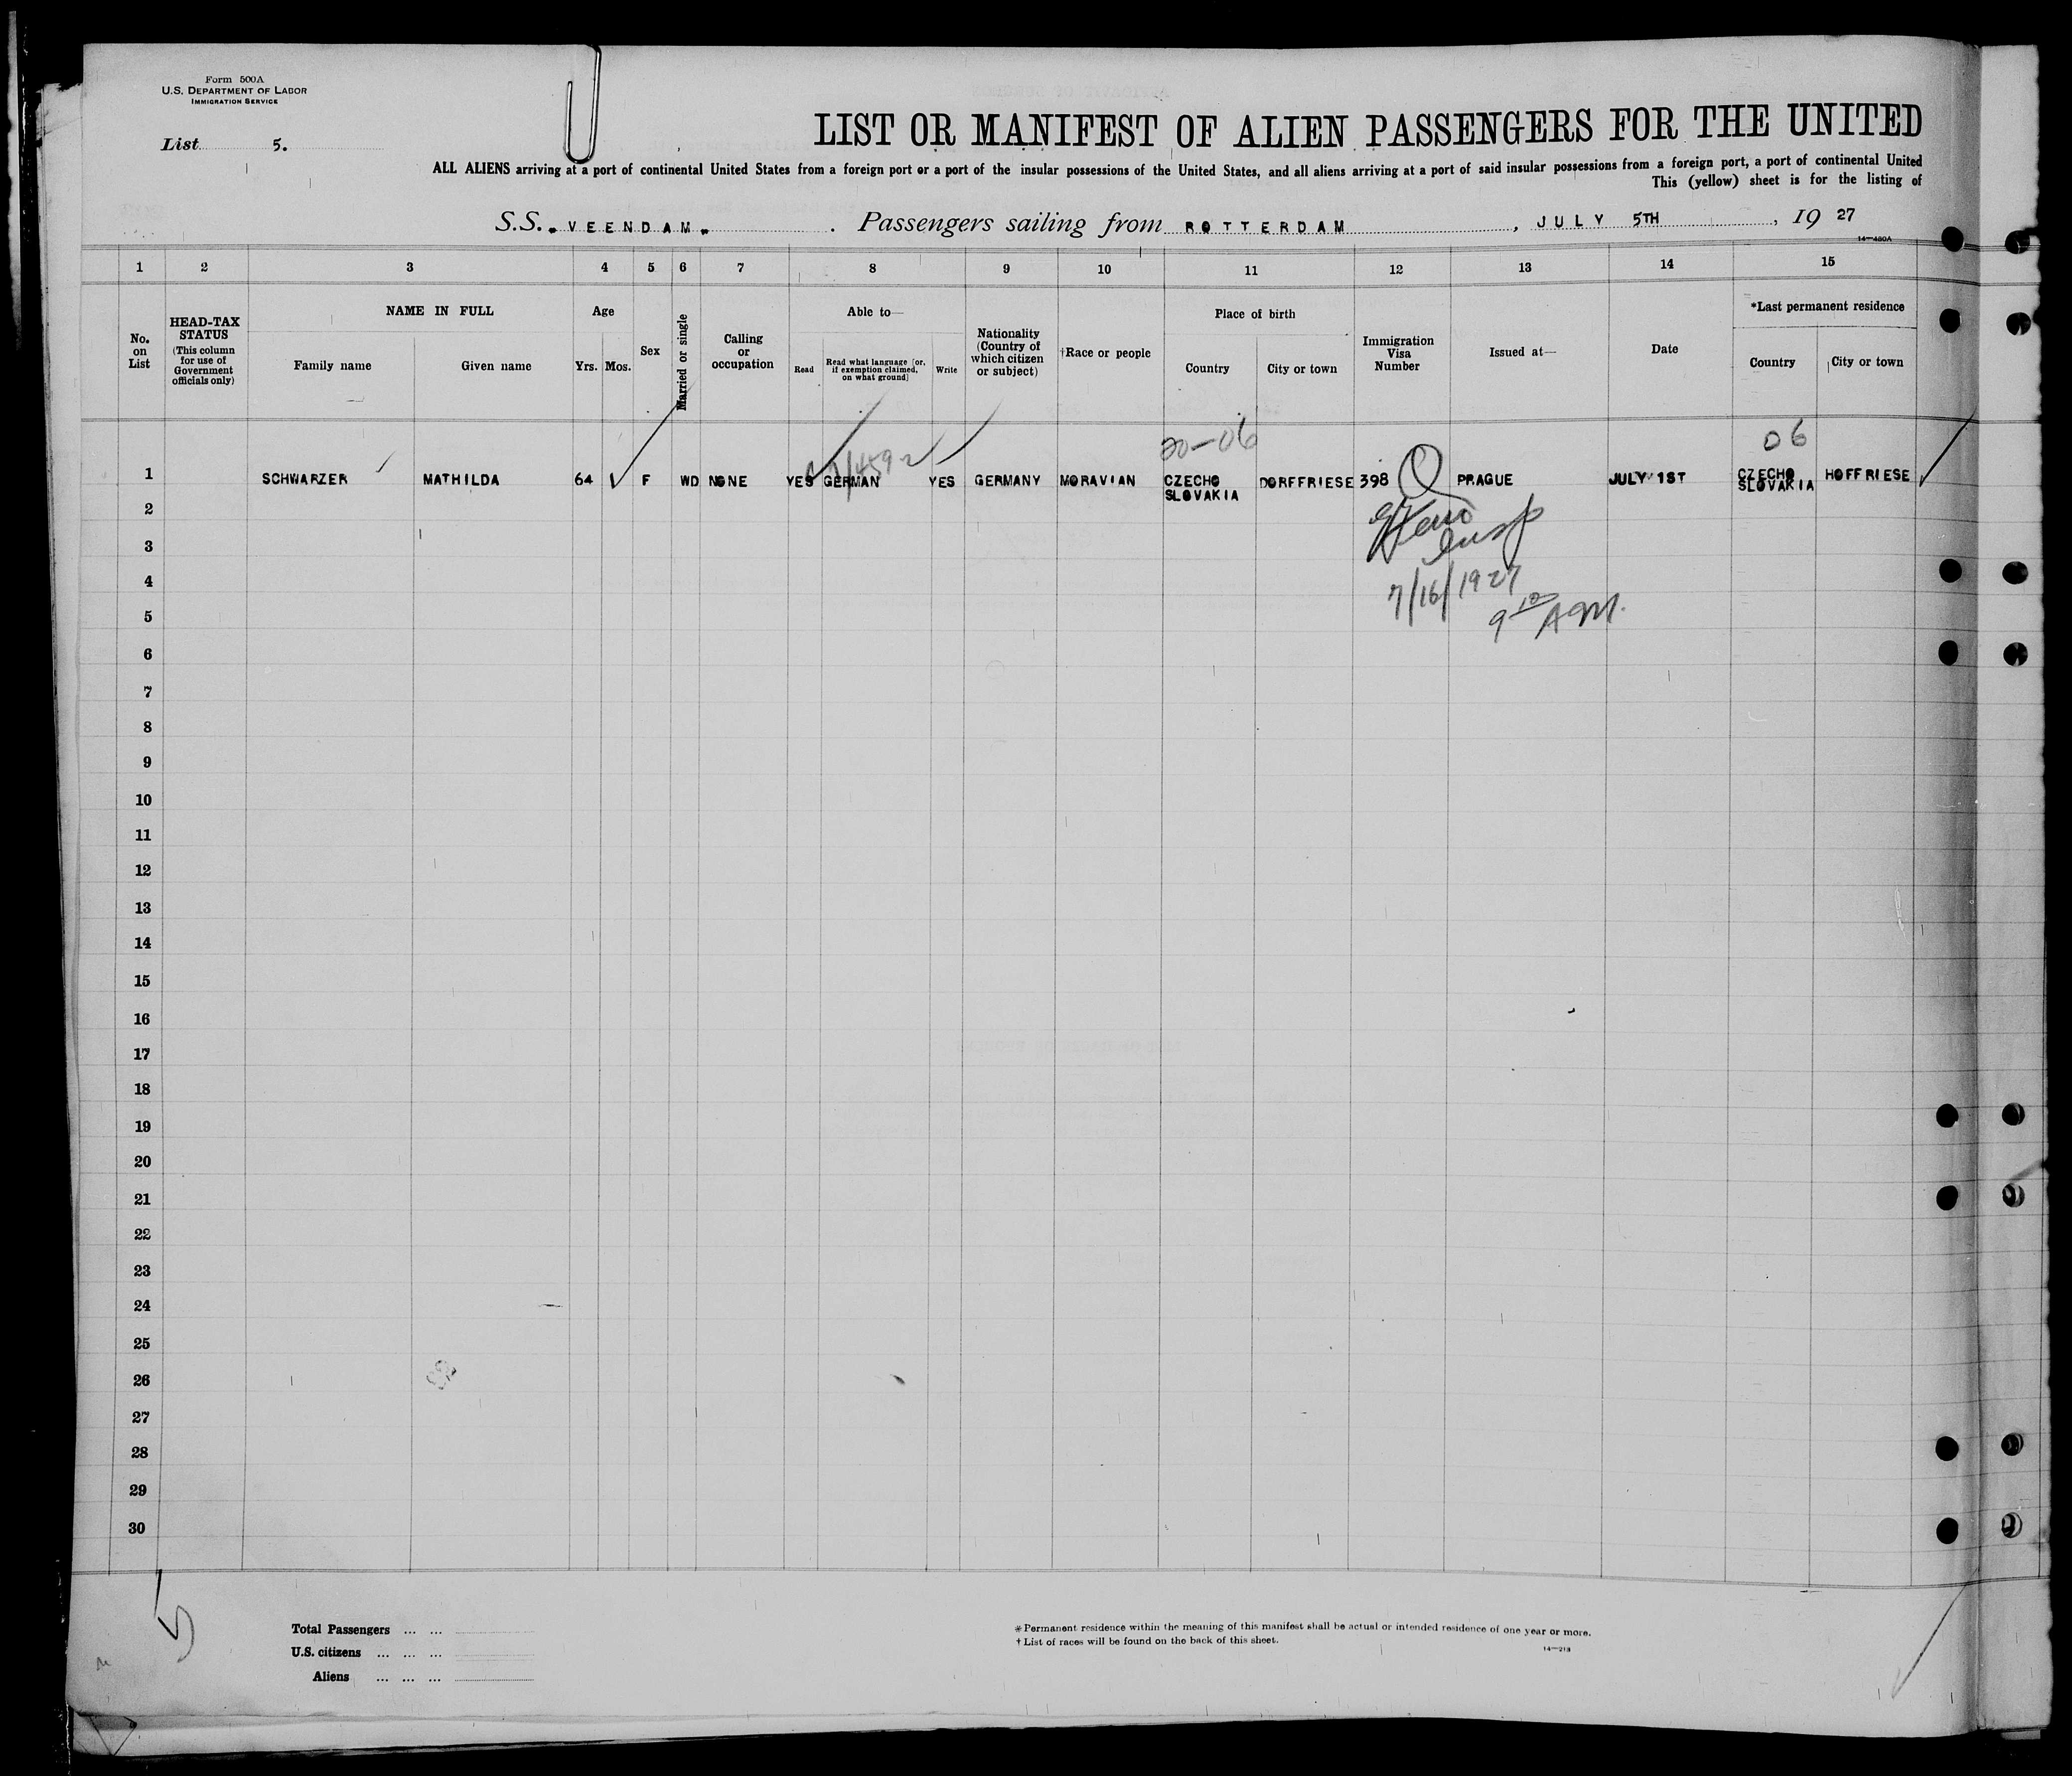 Form 500A
U.S. DEPARTMENT OF LABOR
IMMIGRATION SERVICE
List 5.
LIST OR MANIFEST OF ALIEN PASSENGERS FOR THE UNITED
ALL ALIENS arriving at a port of continental United States from a foreign port or a port of the insular possessions of the United States, and all aliens arriving at a port of said insular possessions from a foreign port, a port of continental United
This (yellow) sheet is for the listing of
S.S. VEENDAM. Passengers sailing from ROTTERDAM, JULY 5TH, 19 27
14—430A
1 2 3 4 5 6 7 8 9 10 11 12 13 14 15
No. on List
HEAD-TAX STATUS (This column for use of Government officials only)
NAME IN FULL
Family name Given name
Age
Yrs. Mos.
Sex
Married or single
Calling or occupation
Able to—
Read Read what language [or, if exemption claimed, on what ground] Write
Nationality (Country of which citizen or subject)
†Race or people
Place of birth
Country City or town
Immigration Visa Number
Issued at—
Date
*Last permanent residence
Country City or town
20-06 06
1 SCHWARZER MATHILDA 64 F WD NONE YES GERMAN YES GERMANY MORAVIAN CZECHO SLOVAKIA DORFFRIESE 398 PRAGUE JULY 1ST CZECHO SLOVAKIA HOFFRIESE
2
3
insp
4
7/16/1927
5
9 10 AM.
6
7
8
9
10
11
12
13
14
15
16
17
18
19
20
21
22
23
24
25
26
27
28
29
30
5
Total Passengers ... ...
U.S. citizens ... ... ...
Aliens ... ... ...
*Permanent residence within the meaning of this manifest shall be actual or intended residence of one year or more.
†List of races will be found on the back of this sheet.
14—213